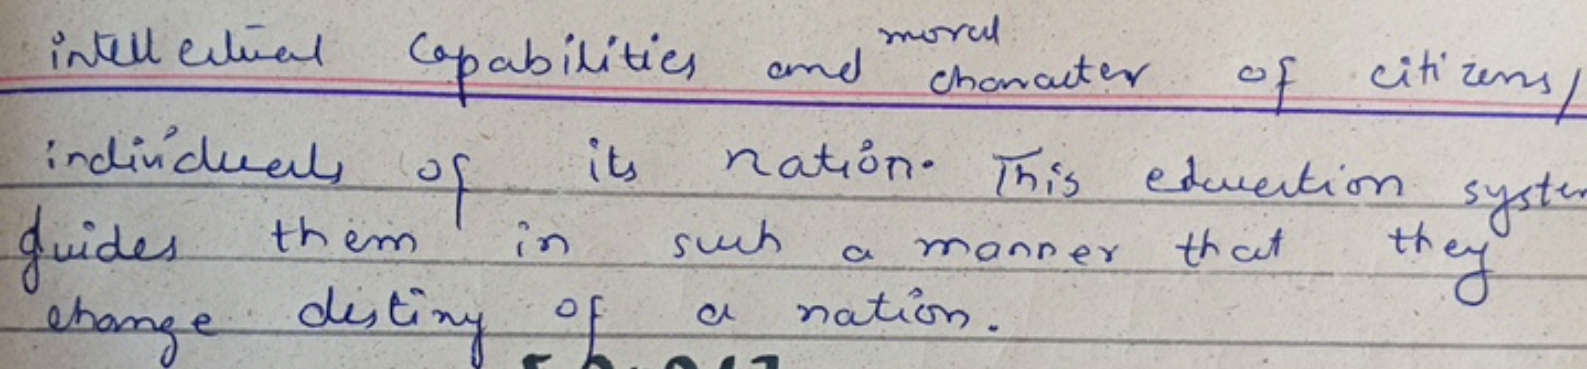 intellectual capabilities and moral character of citizens/
individuals of its nation. This education system
guides them in such a manner that they
change destiny of a nation.